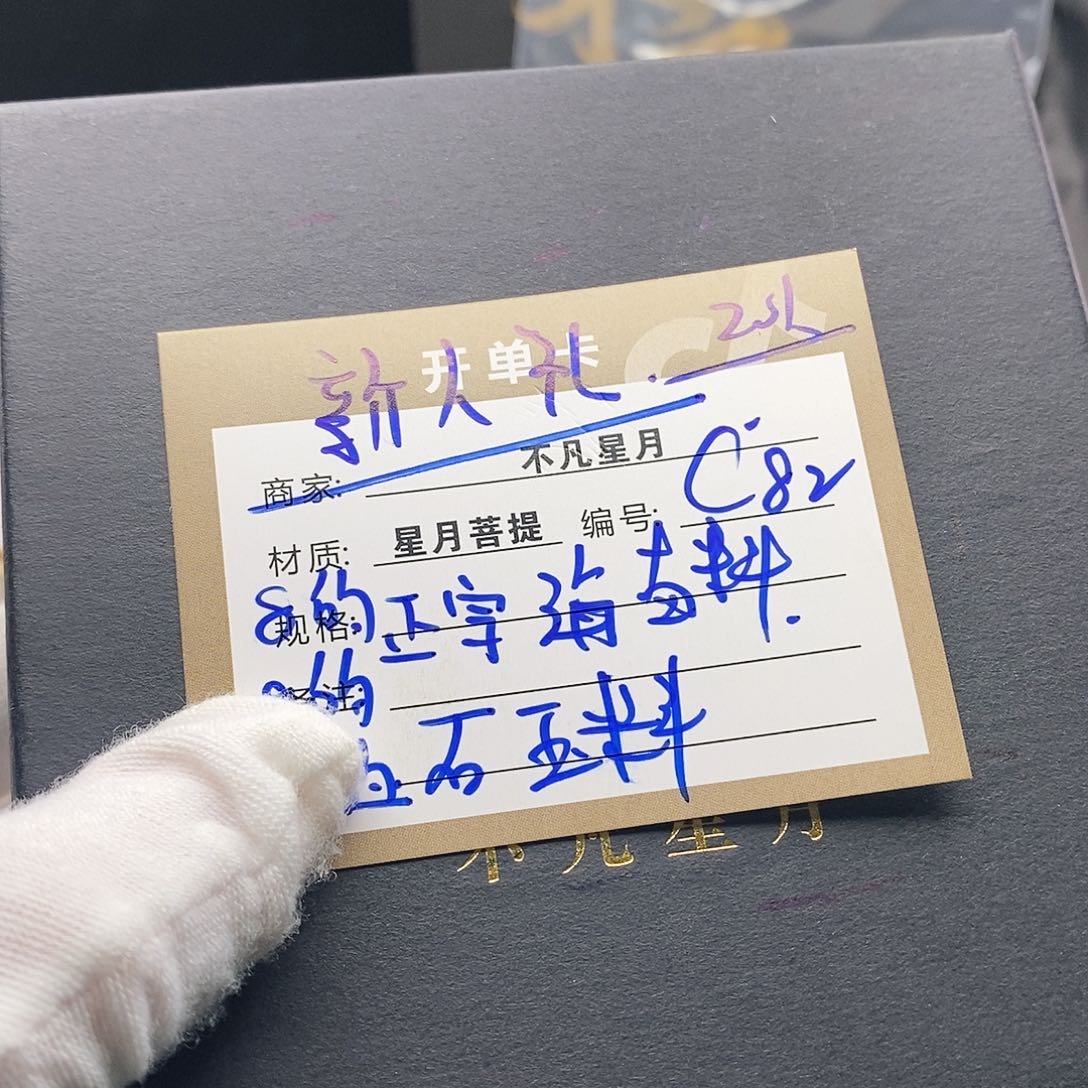 开单卡
新人礼. 2礼
商家: 不凡星月
材质: 星月菩提 编号: C82
规格: 8的正宗海南料.
备注: 8的
玉料
不凡星月